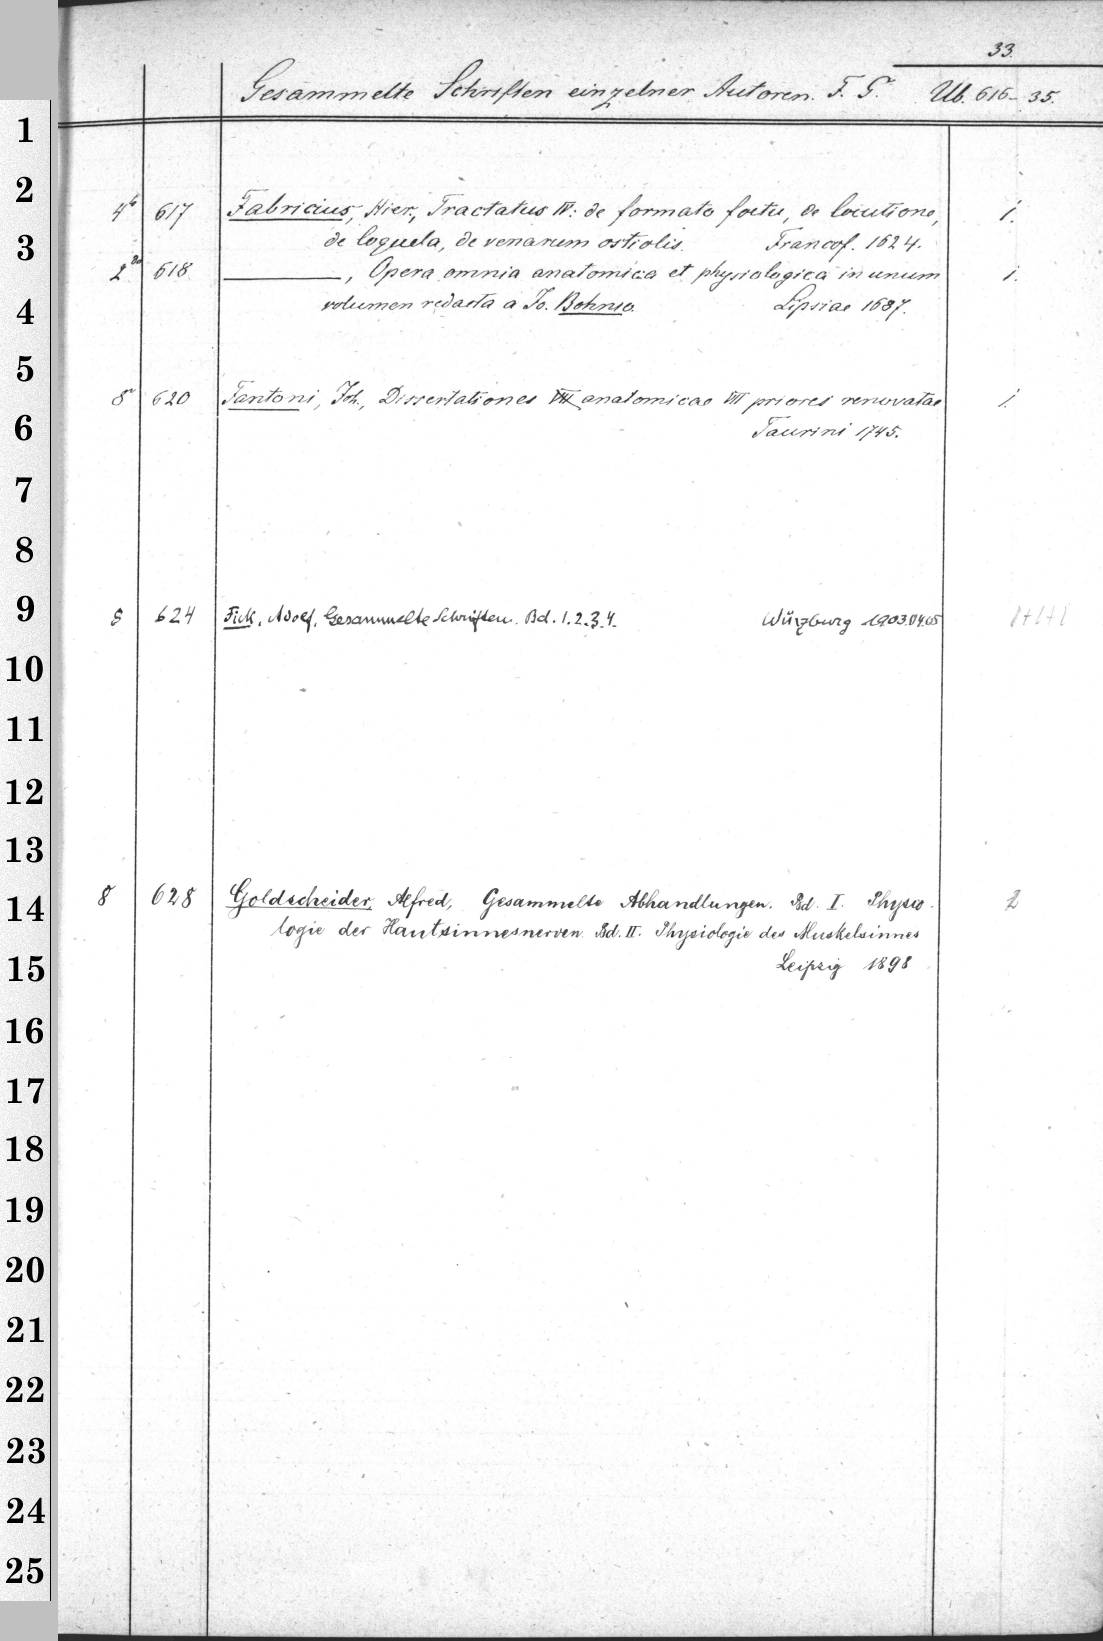 33.
Gesammelte Schriften einzelner Autoren. F. G. Ub. 616-35.
1
2
4to 617 Fabricius, Hier., Tractatus IV: de formato foetu, de locutione, 1.
3
de loquela, de venarum ostiolis. Francof. 1624.
2do 618 , Opera omnia anatomica et physiologica in unum 1.
4
volumen redacta a Jo. Bohnio. Lipsiae 1687.
5
8o 620 Fantoni, Joh., Dissertationes VII anatomicae VII priores renovatae 1.
6
Taurini 1745.
7
8
9
8 624 Fick, Adolf, Gesammelte Schriften. Bd. 1.2.3.4. Würzburg 1903.04.05 1+1+1
10
11
12
13
8 628 Goldscheider, Alfred, Gesammelte Abhandlungen. Bd. I. Physio- 2
14
logie der Hautsinnesnerven. Bd. II. Physiologie des Muskelsinnes
15
Leipzig 1898
16
17
18
19
20
21
22
23
24
25